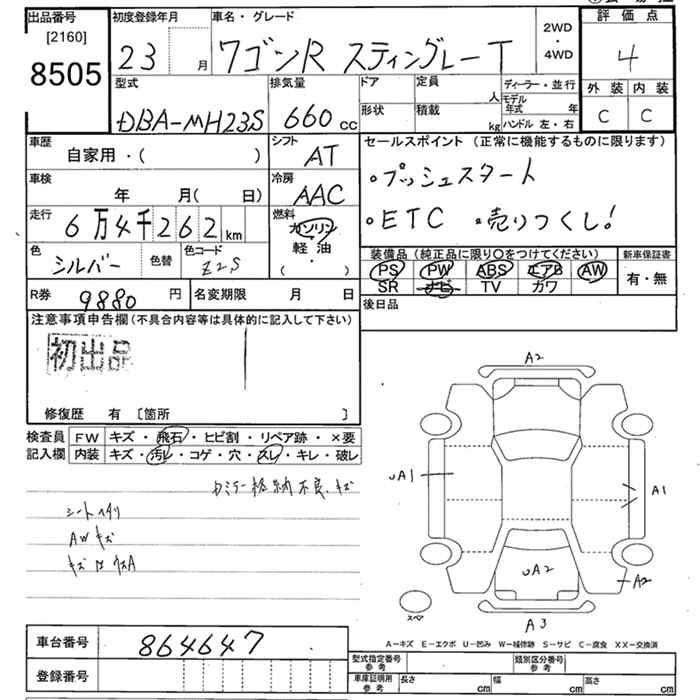 出品番号
[2160]
8505
初度登録年月
23 月
車名・グレード
ワゴンR スティングレーT
2WD
・
4WD
評価点
4
外装 内装
C C
型式
DBA-MH23S
排気量
660 cc
ドア
定員
人
形状
積載
kg
ディーラー・並行
モデル年式 年
ハンドル 左・右
車歴
自家用・( )
シフト
AT
セールスポイント (正常に機能するものに限ります)
・プッシュスタート
・ETC ・売りつくし!
車検
年 月( 日)
冷房
AAC
走行
6万4千262km
燃料
ガソリン
軽油
( ・ )
色
シルバー
色替
色コード
Z2S
装備品 (純正品に限り〇をつけてください)
PS PW ABS エアB AW
SR ナビ TV カワ
新車保証書
有・無
R券 9880 円
名変期限 月 日
後日品
注意事項申告欄(不具合内容等は具体的に記入して下さい)
初出品
修復歴 有 [箇所 ]
検査員
記入欄
FW キズ・飛石・ヒビ割・リペア跡・×要
内装 キズ・汚レ・コゲ・穴・スレ・キレ・破レ
格納不良、キズ
シート
AWキズ
キズ
A2
UA1
A1
UA2
A2
A3
スペア
A-キズ E-エクボ U-凹み W-補修跡 S-サビ C-腐食 XX-交換済
車台番号 864647
登録番号
型式指定番号
参考
類別区分番号
参考
車庫証明用
参考
長さ cm
幅 cm
高さ cm